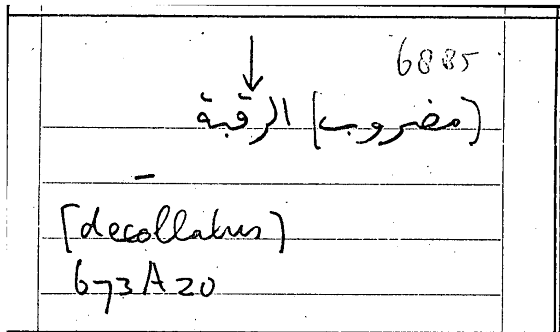 6885
(مضروب) الرقبة
[decollatus]
673A20